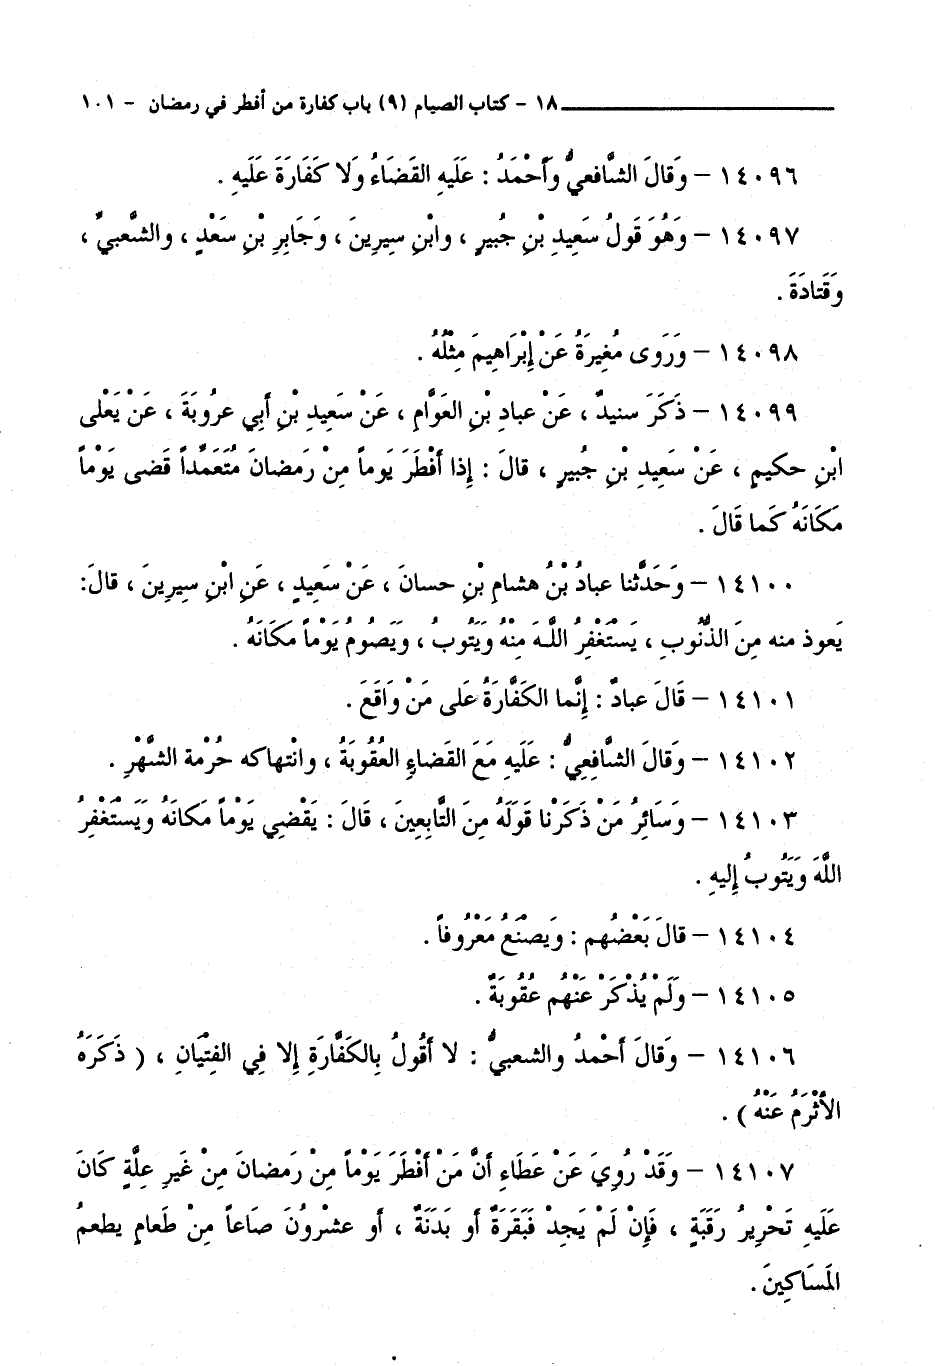 ١٨ - كتاب الصيام (٩) باب كفارة من أفطر في رمضان - ١٠١
١٤٠٩٦ - وَقالَ الشَّافعيُّ وَأَحْمَدُ : عَلَيهِ القَضَاءُ وَلا كَفَارَةَ عَلَيهِ .
١٤٠٩٧ - وَهُوَ قَولُ سَعِيدِ بْنِ جُبيرٍ ، وابْنِ سِيرِينَ ، وَجَابِرِ بْنِ سَعْدٍ ، والشَّعبيِّ ،
وَقَتادَةَ .
١٤٠٩٨ - وَرَوَى مُغِيرَةُ عَنْ إِبْرَاهِيمَ مِثْلُهُ .
١٤٠٩٩ - ذَكَرَ سنيدٌ ، عَنْ عبادِ بْنِ العَوَّامِ ، عَنْ سَعِيدِ بْنِ أَبي عروبَةَ ، عَنْ يَعْلى
ابْنِ حكيمٍ ، عَنْ سَعِيدِ بْنِ جُبيرٍ ، قالَ : إِذا أَفْطَرَ يَوماً مِنْ رَمضانَ مُتَعَمِّداً قَضى يَوْماً
مَكَانَهُ كَما قَالَ .
١٤١٠٠ - وَحَدَّثنا عبادُ بْنُ هشامِ بْنِ حسانَ ، عَنْ سَعِيدٍ ، عَنِ ابْنِ سيرِينَ ، قالَ:
يَعوذ منه مِنَ الذُّنُوبِ ، يَسْتَغْفِرُ اللَّهَ مِنْهُ وَيَتُوبُ ، وَيَصُومُ يَوْماً مَكَانَهُ .
١٤١٠١ - قَالَ عبادٌ : إِنَّما الكَفَّارَةُ عَلى مَنْ وَاقَعَ .
١٤١٠٢ - وَقالَ الشَّافِعِيُّ : عَلَيهِ مَعَ القَضاءِ العُقُوبَةُ ، وانْتهاكه حُرْمة الشَّهْرِ .
١٤١٠٣ - وَسَائِرُ مَنْ ذَكَرْنا قَولَهُ مِنَ التَّابِعِينَ ، قَالَ : يَقْضِي يَوْماً مَكَانَهُ وَيَسْتَغْفِرُ
اللَّهَ وَيَتُوبُ إِليهِ .
١٤١٠٤ - قالَ بَعْضُهم : وَيَصْنَعُ مَعْرُوفاً .
١٤١٠٥ - وَلَمْ يُذْكَرْ عَنْهُم عُقُوبَةٌ .
١٤١٠٦ - وَقالَ أَحْمدُ والشعبيُّ : لا أَقُولُ بِالكَفَّارَةِ إِلا فِي الفِتْيَانِ ، ( ذَكَرَهُ
الأَثْرَمُ عَنْهُ ) .
١٤١٠٧ - وَقَدْ رُوِيَ عَنْ عَطَاءِ أَنَّ مَنْ أَفْطَرَ يَوْماً مِنْ رَمضانَ مِنْ غَيرِ عِلَّةٍ كَانَ
عَلَيهِ تَحْرِيرُ رَقَبَةٍ ، فَإِنْ لَمْ يَجِدْ فَبَقَرَةٌ أَو بَدَنَةٌ ، أَو عشْرُونَ صَاعاً مِنْ طَعامٍ يطعمُ
المَسَاكِينَ .